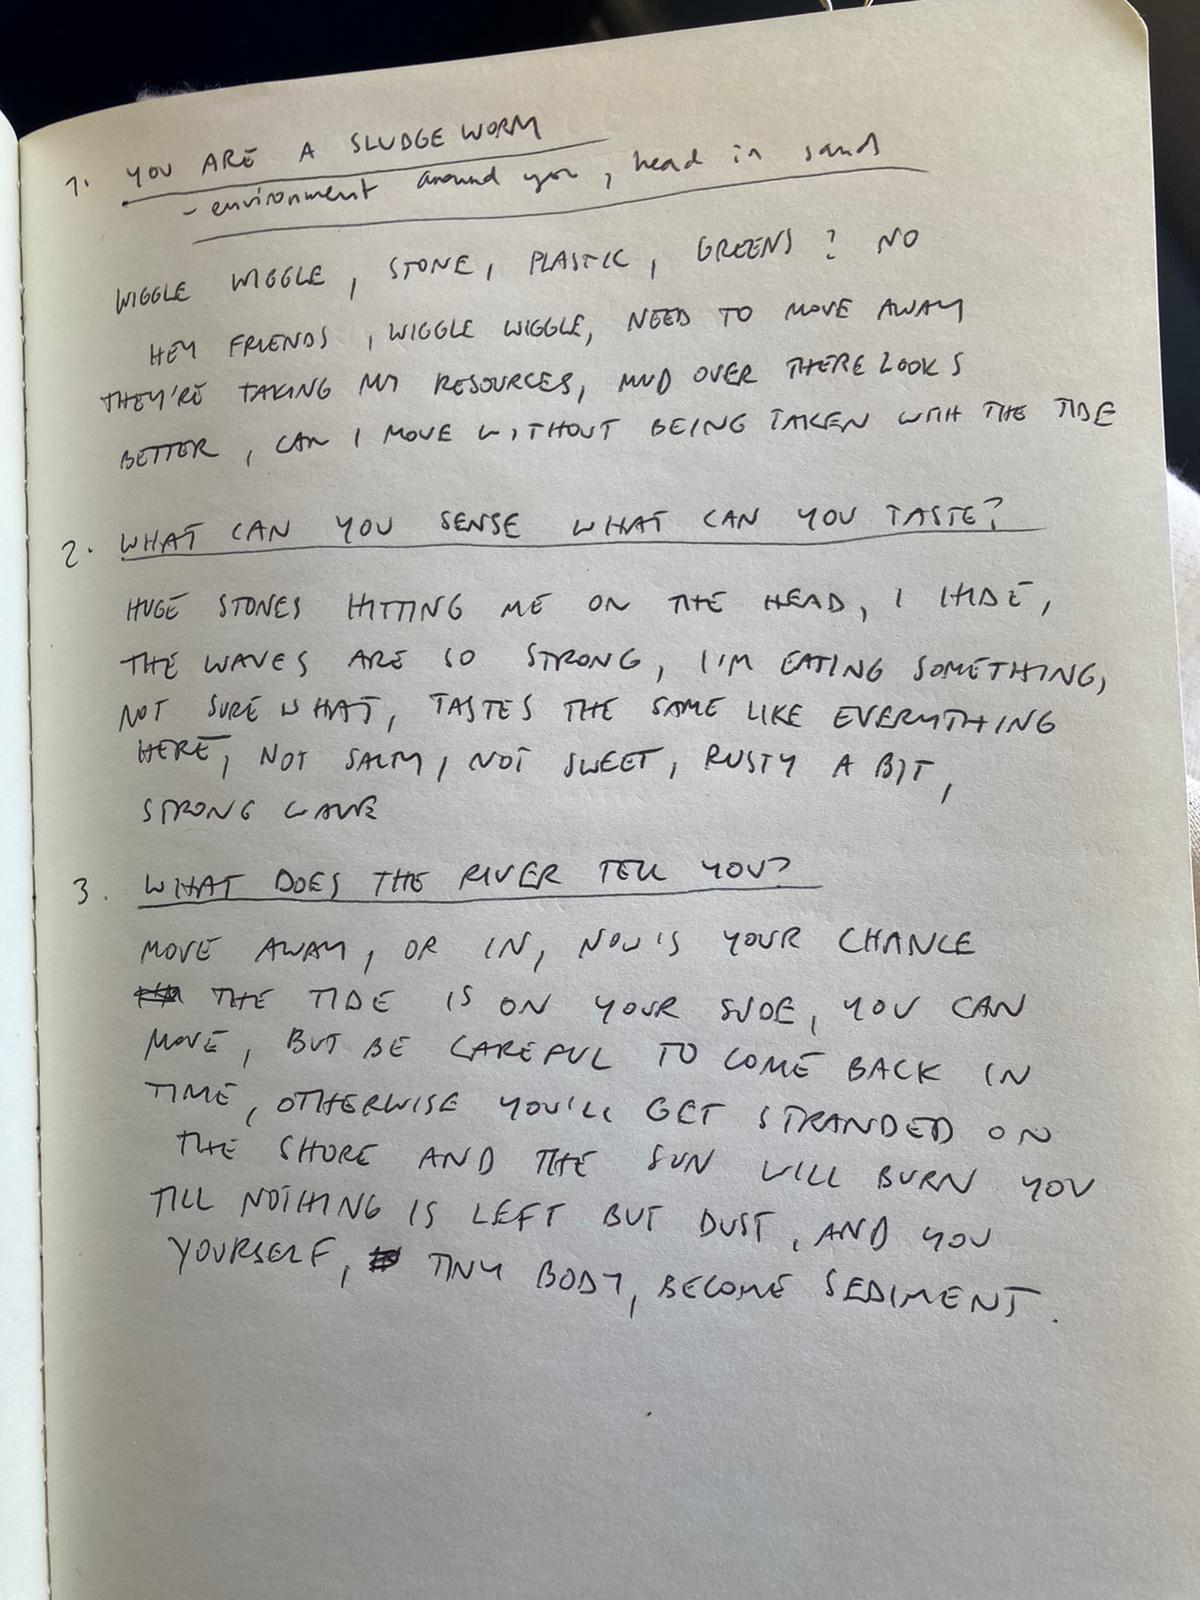 1. YOU ARE A SLUDGE WORM
- environment around you, head in sands
WIGGLE WIGGLE, STONE, PLASTIC, GREENS? NO
HEY FRIENDS, WIGGLE WIGGLE, NEED TO MOVE AWAY
THEY'RE TAKING MY RESOURCES, MUD OVER THERE LOOKS
BETTER, CAN I MOVE WITHOUT BEING TAKEN WITH THE TIDE
2. WHAT CAN YOU SENSE WHAT CAN YOU TASTE?
HUGE STONES HITTING ME ON THE HEAD, I HIDE,
THE WAVES ARE SO STRONG, I'M EATING SOMETHING,
NOT SURE WHAT, TASTES THE SAME LIKE EVERYTHING
HERE, NOT SALTY, NOT SWEET, RUSTY A BIT,
STRONG WAVE
3. WHAT DOES THE RIVER TELL YOU?
MOVE AWAY, OR IN, NOW IS YOUR CHANCE
THE TIDE IS ON YOUR SIDE, YOU CAN
MOVE, BUT BE CAREFUL TO COME BACK IN
TIME, OTHERWISE YOU'LL GET STRANDED ON
THE SHORE AND THE SUN WILL BURN YOU
TILL NOTHING IS LEFT BUT DUST, AND YOU
YOURSELF, TINY BODY, BECOME SEDIMENT.